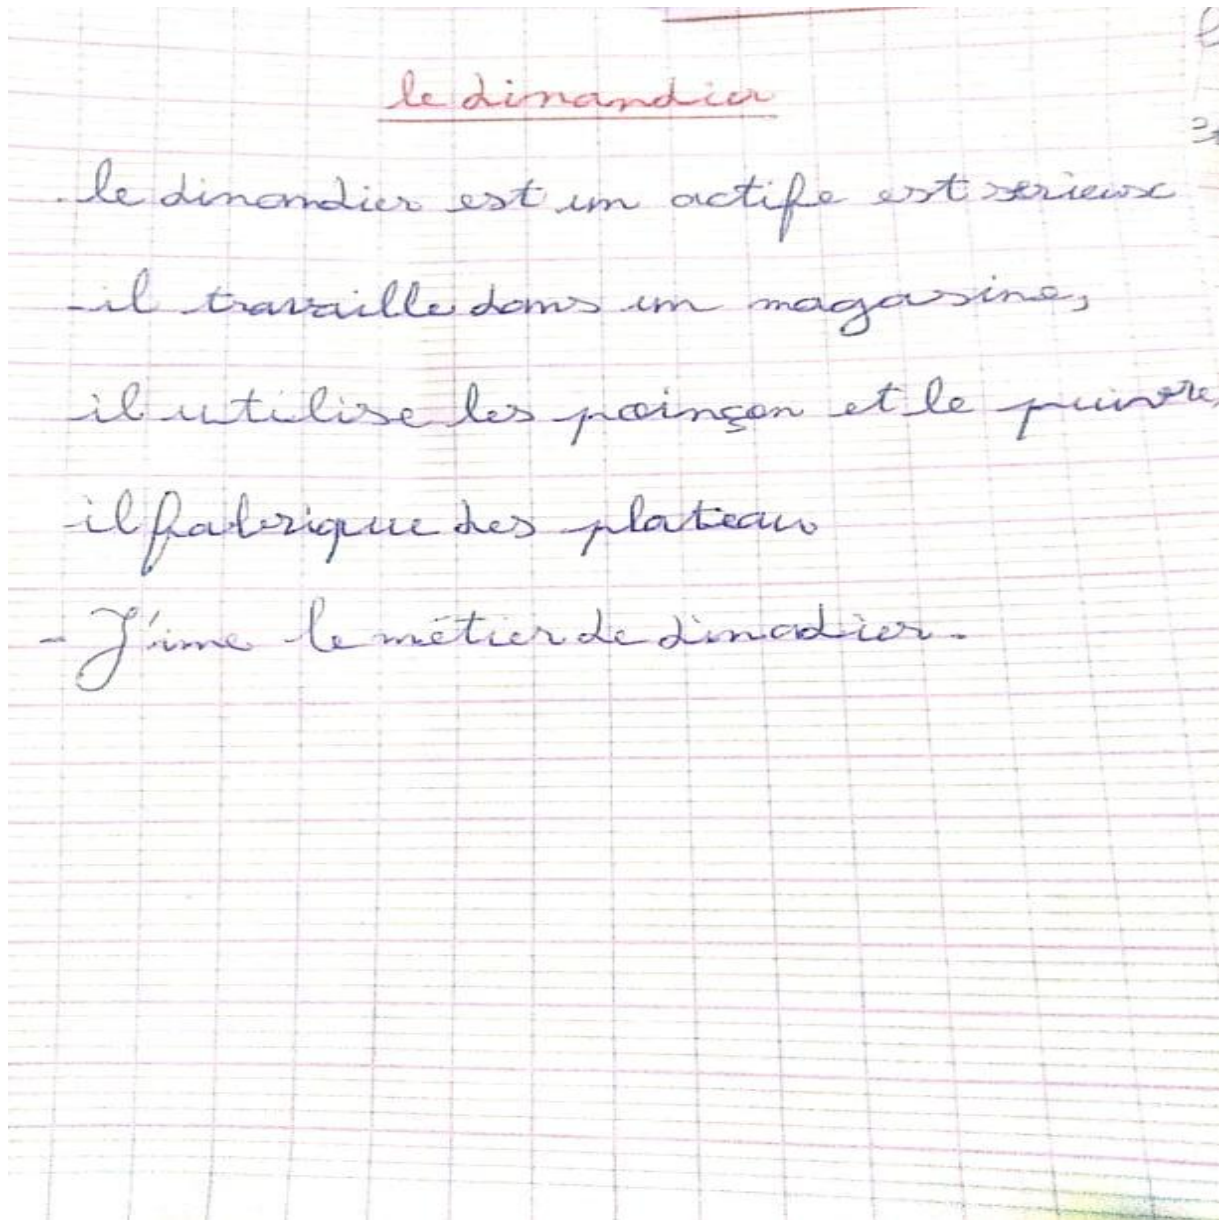 le dinandier
- le dinandier est un actife est serieuse
- il travaille dans un magasine,
il utilise les poinçon et le puivre,
- il fabrique des plateau
- J'ime le métier de dinadier.